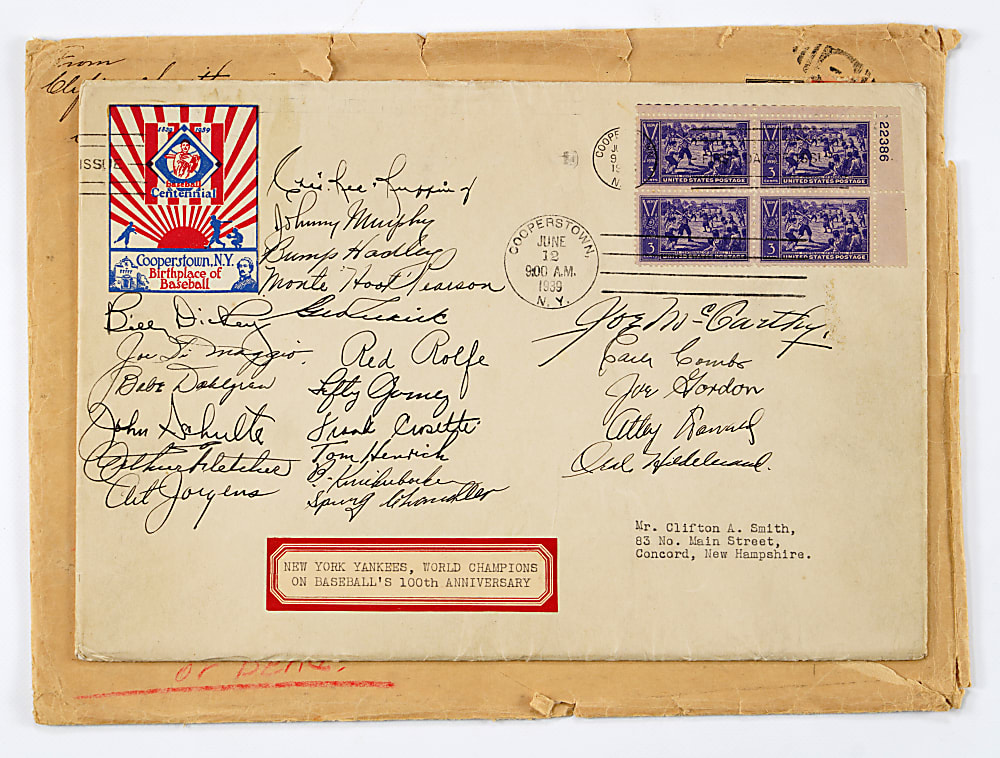 From
ISSUE
1839 1939
Baseball
Centennial
Cooperstown, N.Y.
Birthplace of
Baseball
COOPE
9
19
N.
UNITED STATES POSTAGE
3
UNITED STATES POSTAGE
3
UNITED STATES POSTAGE
3
UNITED STATES POSTAGE
3
22386
COOPERSTOWN,
JUNE
12
9:00 A.M.
1939
N. Y.
Johnny Murphy
Bump Hadley
Monte "Hoot" Pearson
Bill Dickey
Joe Di Maggio
Babe Dahlgren
John Schulte
Arthur Fletcher
Art Jorgens
Red Rolfe
Lefty Gomez
Frank Crosetti
Tom Henrich
B. Knickerbocker
Spurg Chandler
Joe McCarthy
Earle Combs
Joe Gordon
Atley Donald
Oral Hildebrand.
Mr. Clifton A. Smith,
83 No. Main Street,
Concord, New Hampshire.
NEW YORK YANKEES, WORLD CHAMPIONS
ON BASEBALL'S 100th ANNIVERSARY